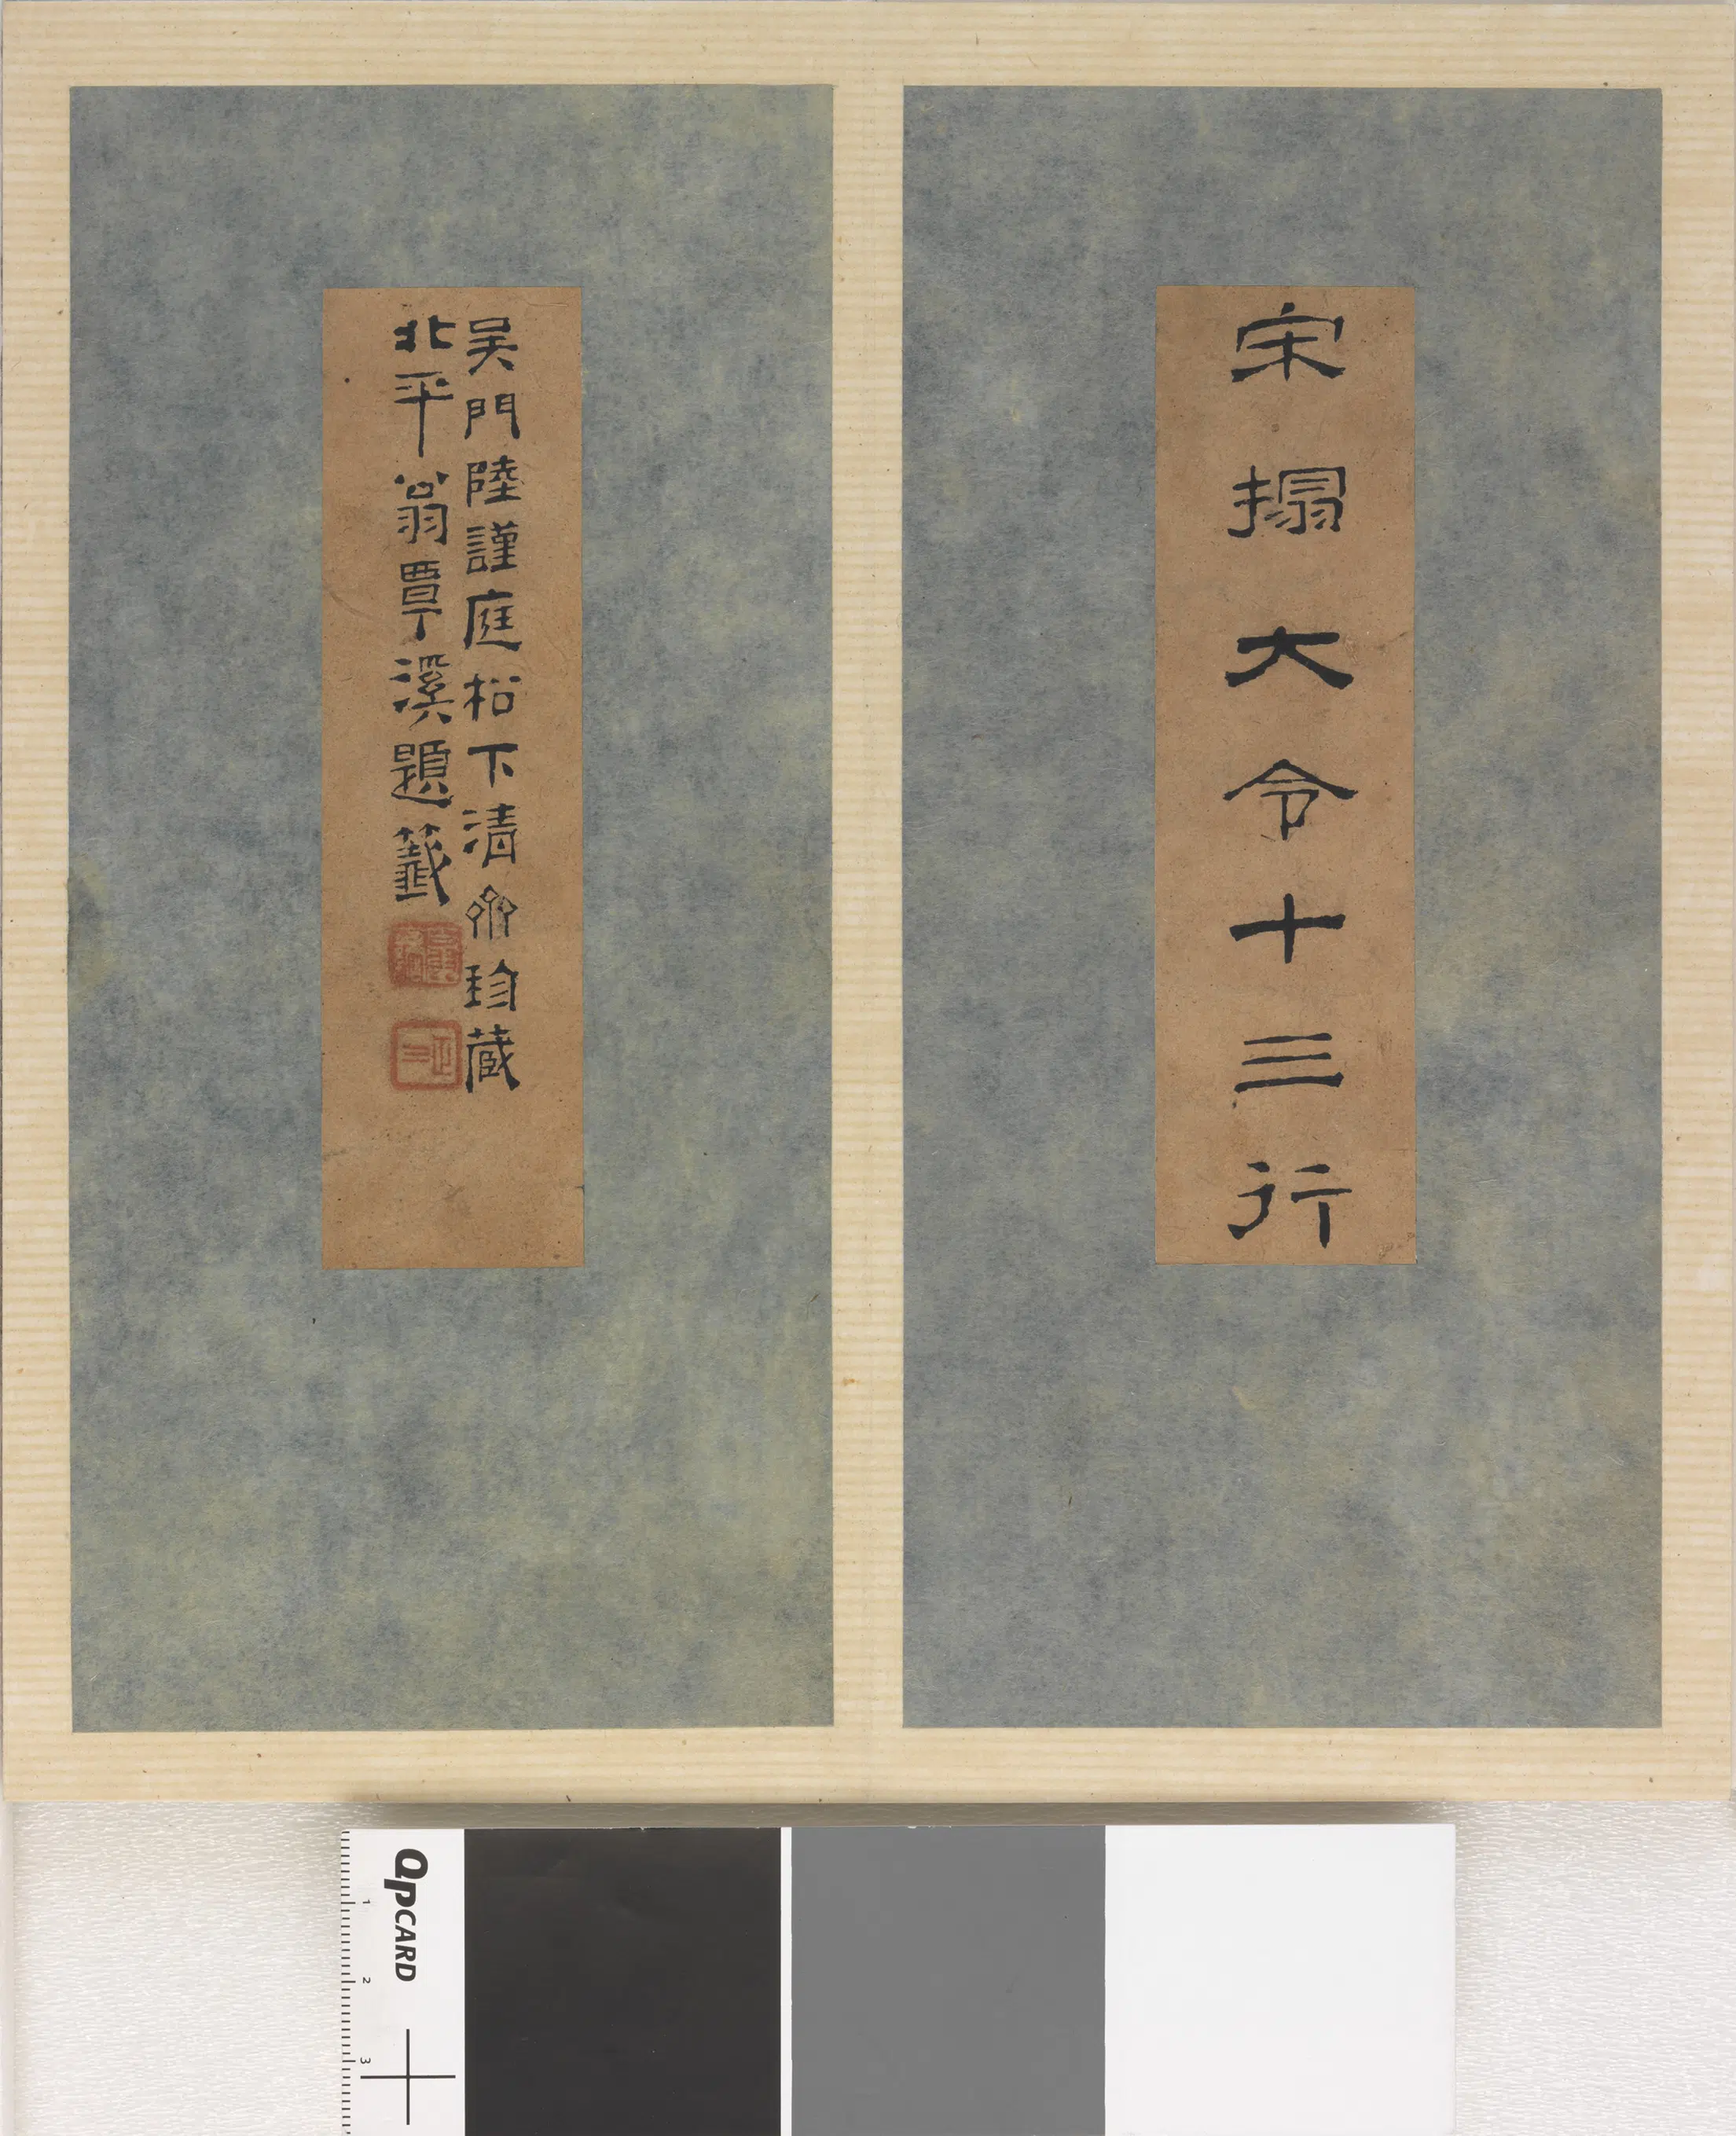 宋搨大令十三行
吴門陸謹庭松下清齋珍藏
北平翁覃溪題籤
QPCARD
1
2
3